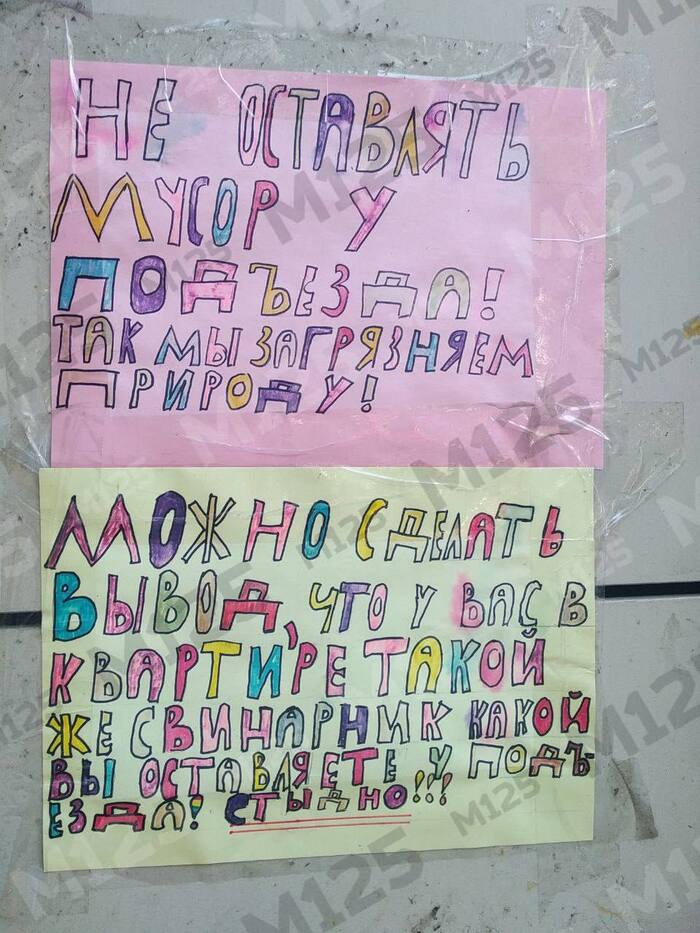 НЕ ОСТАВЛЯТЬ
МУСОР У
ПОДЪЕЗДА!
ТАК МЫ ЗАГРЯЗНЯЕМ
ПРИРОДУ!
МОЖНО СДЕЛАТЬ
ВЫВОД, ЧТО У ВАС В
КВАРТИ'РЕ ТАКОЙ
ЖЕ СВИНАРНИК КАКОЙ
ВЫ ОСТАВЛЯЕТЕ У ПОДЪ-
ЕЗДА! СТЫДНО!!!
M125